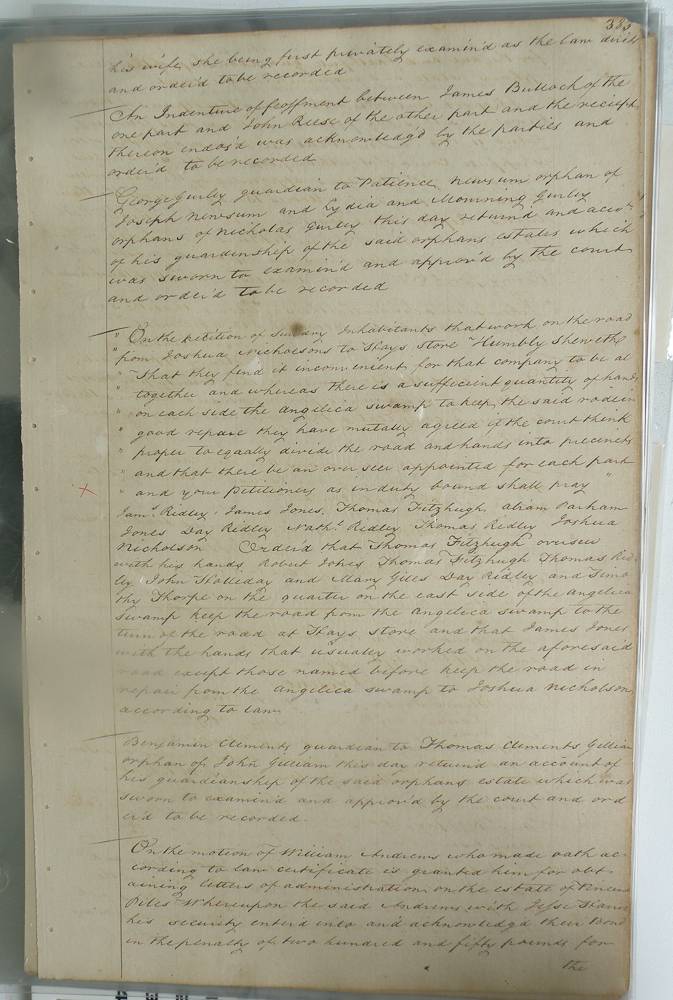 385
his wife, she being first privately examin'd as the law directs
and order'd to be recorded
An Indenture of feoffment between James Bullock of the
one part and John Reese of the other part and the receipt
thereon endos'd was acknowledg'd by the parties and
order'd to be recorded
George Gurley guardian to Patience Newsum orphan of
Joseph Newsum and Lydia and Mourning Gurley
orphans of Nicholas Gurley this day return'd and acco.t
of his guardianship of the said orphans estates which
was sworn to examin'd and approv'd by the court
and order'd to be recorded
" On the petition of sundry Inhabitants that work on the road
" from Joshua Nicholsons to Hays store Humbly Sheweth
" That they find it inconvenient for that company to be al
" together and whereas there is a suffecient quantity of hands
" on each side the angelica swamp to keep the said rode in
" good repair they have mutally agreed if the court think
" proper to equally divide the road and hands into precincts
" and that there be an overseer appointed for each part
" and your petitioners as in duty bound shall pray "
Jam.s Ridley, James Jones, Thomas Fitzhugh, abram Parham
Jones Day Ridley Nath.l Ridley Thomas Ridley Joshua
Nicholson Order'd that Thomas Fitzhugh overseer
with his hands, Robert Jones Thomas Fitzhugh Thomas Rid
ley John Holleday and Mary Giles Day Ridley and Timo
thy Thorpe on the quarter on the east side of the angelica
swamp keep the road from the angelica swamp to the
turn of the road at Hays store and that James Jones
with the hands that usualey worked on the aforesaid
road except those named before keep the road in
repair from the angelica swamp to Joshua Nicholson
according to law
Benjamin Clements guardian to Thomas Clements Gilliam
orphan of John Gilliam this day return'd an account of
his guardianship of the said orphans estate which was
sworn to examin'd and approv'd by the court and ord
er'd to be recorded.
On the motion of William Andrews who made oath ac
cording to law certificate is granted him for obt
aining letters of administration on the estate of
Piles Whereupon the said Andrews with Jesse
his security enter'd into and acknowledg'd their Bond
in the penalty of two hundred and fifty pounds for
the